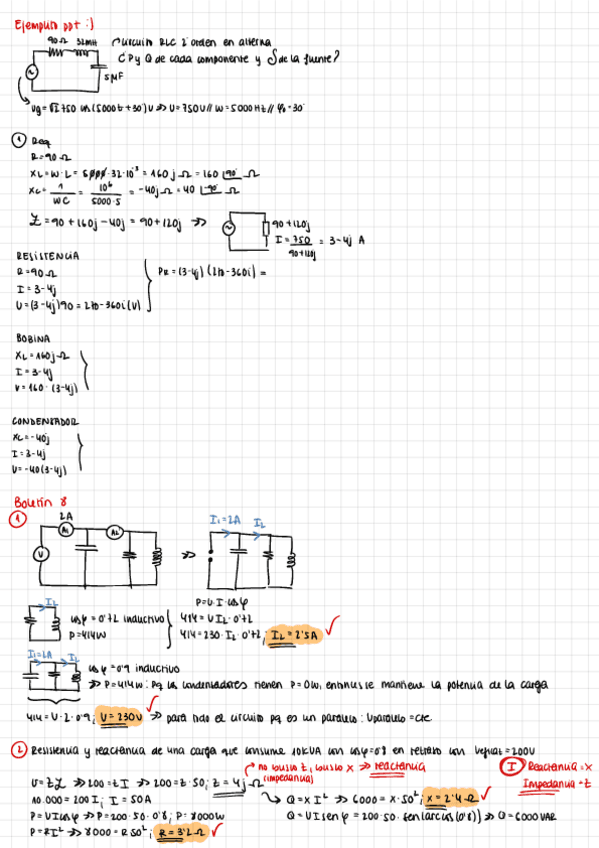 Ejemplito ppt :)
90Ω 32mH
Circuito RLC 2º orden en alterna
¿P y Q de cada componente y S de la fuente?
5μF
vg = √2 750 cos(5000t + 30º) V ⇒ U = 750V // W = 5000Hz // φ = 30
① Req
R = 90 Ω
XL = W·L = 5000·32·10⁻³ = 160j Ω = 160 |90º Ω
Xc = 1/WC = 10⁶/5000·5 = -40j Ω = 40 |-90º Ω
Z = 90 + 160j - 40j = 90 + 120j ⇒
90 + 120j
I = 750/90+120j = 3-4j A
RESISTENCIA
R = 90 Ω
I = 3-4j
U = (3-4j)90 = 270-360i (V)
PR = (3-4j)(270-360i) =
BOBINA
XL = 160j Ω
I = 3-4j
V = 160·(3-4j)
CONDENSADOR
Xc = -40j
I = 3-4j
U = -40(3-4j)
Boletín 8
①
2A
A1 A2
V
⇒
I1 = 2A I2
P = U·I·cosφ
I2
cosφ = 0'72 inductivo
P = 414W
414 = U I2·0'72
414 = 230·I2·0'72; I2 = 2'5A ✓
I1 = 2A I2
cosφ = 0.9 inductivo
⇒ P = 414W: pq los condensadores tienen P = 0W, entonces se mantiene la potencia de la carga
414 = V·2·0'9; U = 230V ✓ ⇒ para todo el circuito pq es un paralelo: Uparalelo = cte
② Resistencia y reactancia de una carga que consume 10kVA con cosφ=0'8 en retraso con Veficaz = 200V
no busco z, busco x ⇒ reactancia
(impedancia)
I Reactancia = X
Impedancia = Z
U = ZI ⇒ 200 = Z I ⇒ 200 = Z·50; Z = 4j Ω
10.000 = 200 I; I = 50A
Q = X I² ⇒ 6000 = X·50²; X = 2'4 Ω ✓
P = U I cosφ ⇒ P = 200·50·0'8; P = 8000W
Q = U I senφ = 200·50·sen(arcos(0'8)) ⇒ Q = 6000 VAR
P = R I² ⇒ 8000 = R 50²; R = 3'2 Ω ✓